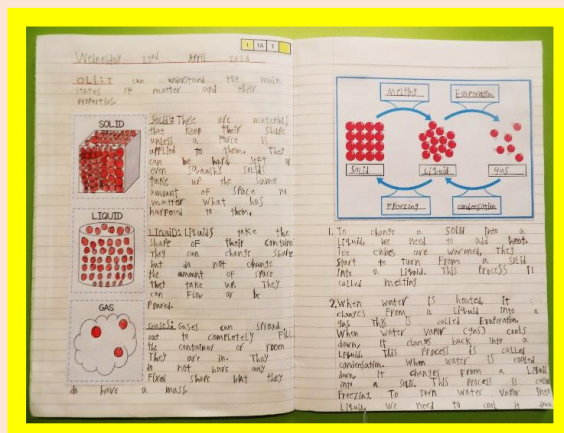 I IA T
Wednesday 22nd April 2026
OLI: I can understand the main
states of matter and their
properties.
SOLID
Solid: These are materials
that keep their shape
unless a force is
applied to them. They
can be hard, soft or
even squashy solids
take up the same
amount of space no
matter what has
happened to them.
LIQUID
Liquid: Liquids take the
shape of their container
They can change shape
but do not change
the amount of space
they take up. They
can flow or be
Poured.
GAS
Gases: Gases can spread
out to completely fill
the container or room
They are in. They
do not have any
Fixed shape but they
do have a mass
Melting
Evaporation
Solid
Liquid
Gas
Freezing
condensation
1. To change a solid into a
Liquid, we need to add heat.
ice cubes are warmed, They
start to turn From a solid
into a Liquid. This process is
called melting
2. When water is heated, it
changes From a Liquid into a
gas This is called Evaporation.
When water vapor (gas) cools
down, it changes back into a
Liquid. This process is called
condensation. When water is cooled
down, it changes from a Liquid
into a solid. This Process is called
Freezing To turn water vapor into
Liquid, we need to cool it down